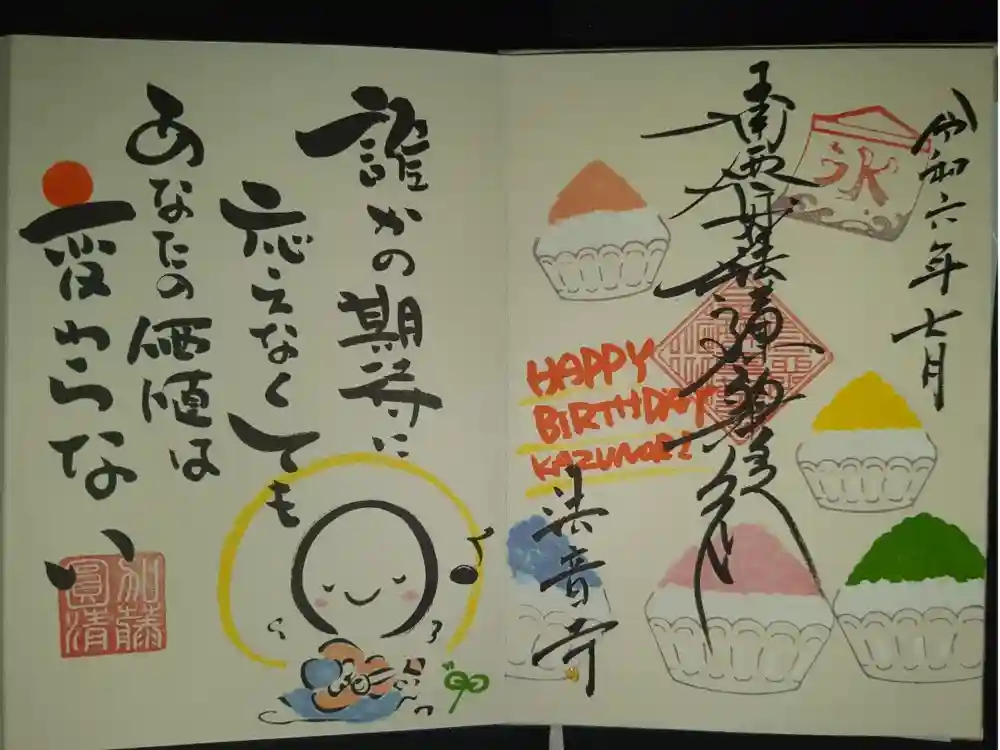 令和六年七月
氷
南無妙法蓮華経
法音寺
HAPPY
BIRTHDAY
KAZUNORI
誰かの期待に
応えなくても
あなたの価値は
変わらない
加藤
圓清